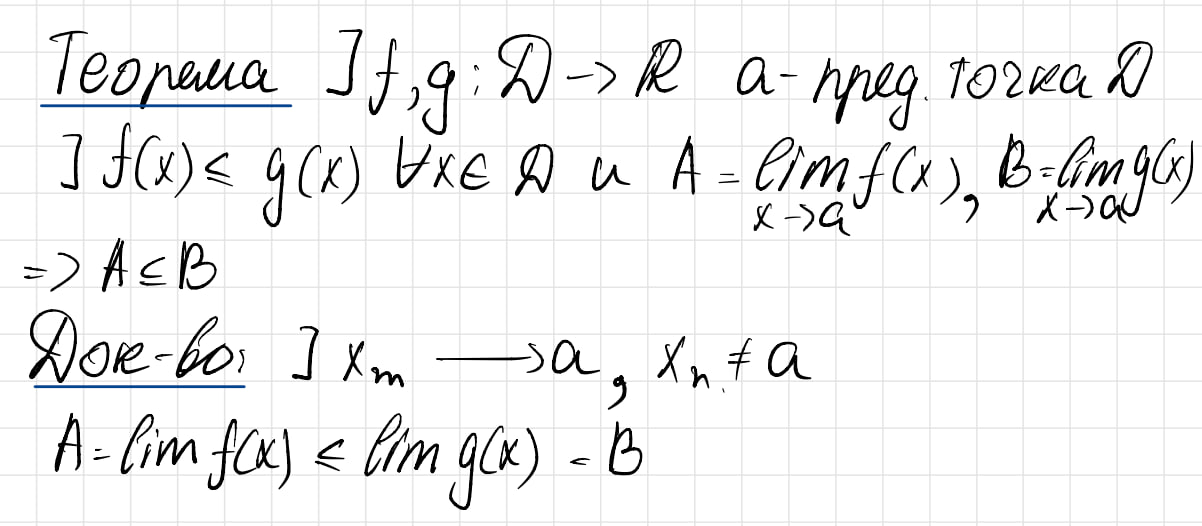 Теорема ] f,g: D -> R a - пред. точка D
] f(x) ≤ g(x) ∀x ∈ D и A = lim f(x), B = lim g(x)
x->a x->a
=> A ≤ B
Док-во: ] x_m -> a, x_n ≠ a
A = lim f(x) ≤ lim g(x) = B